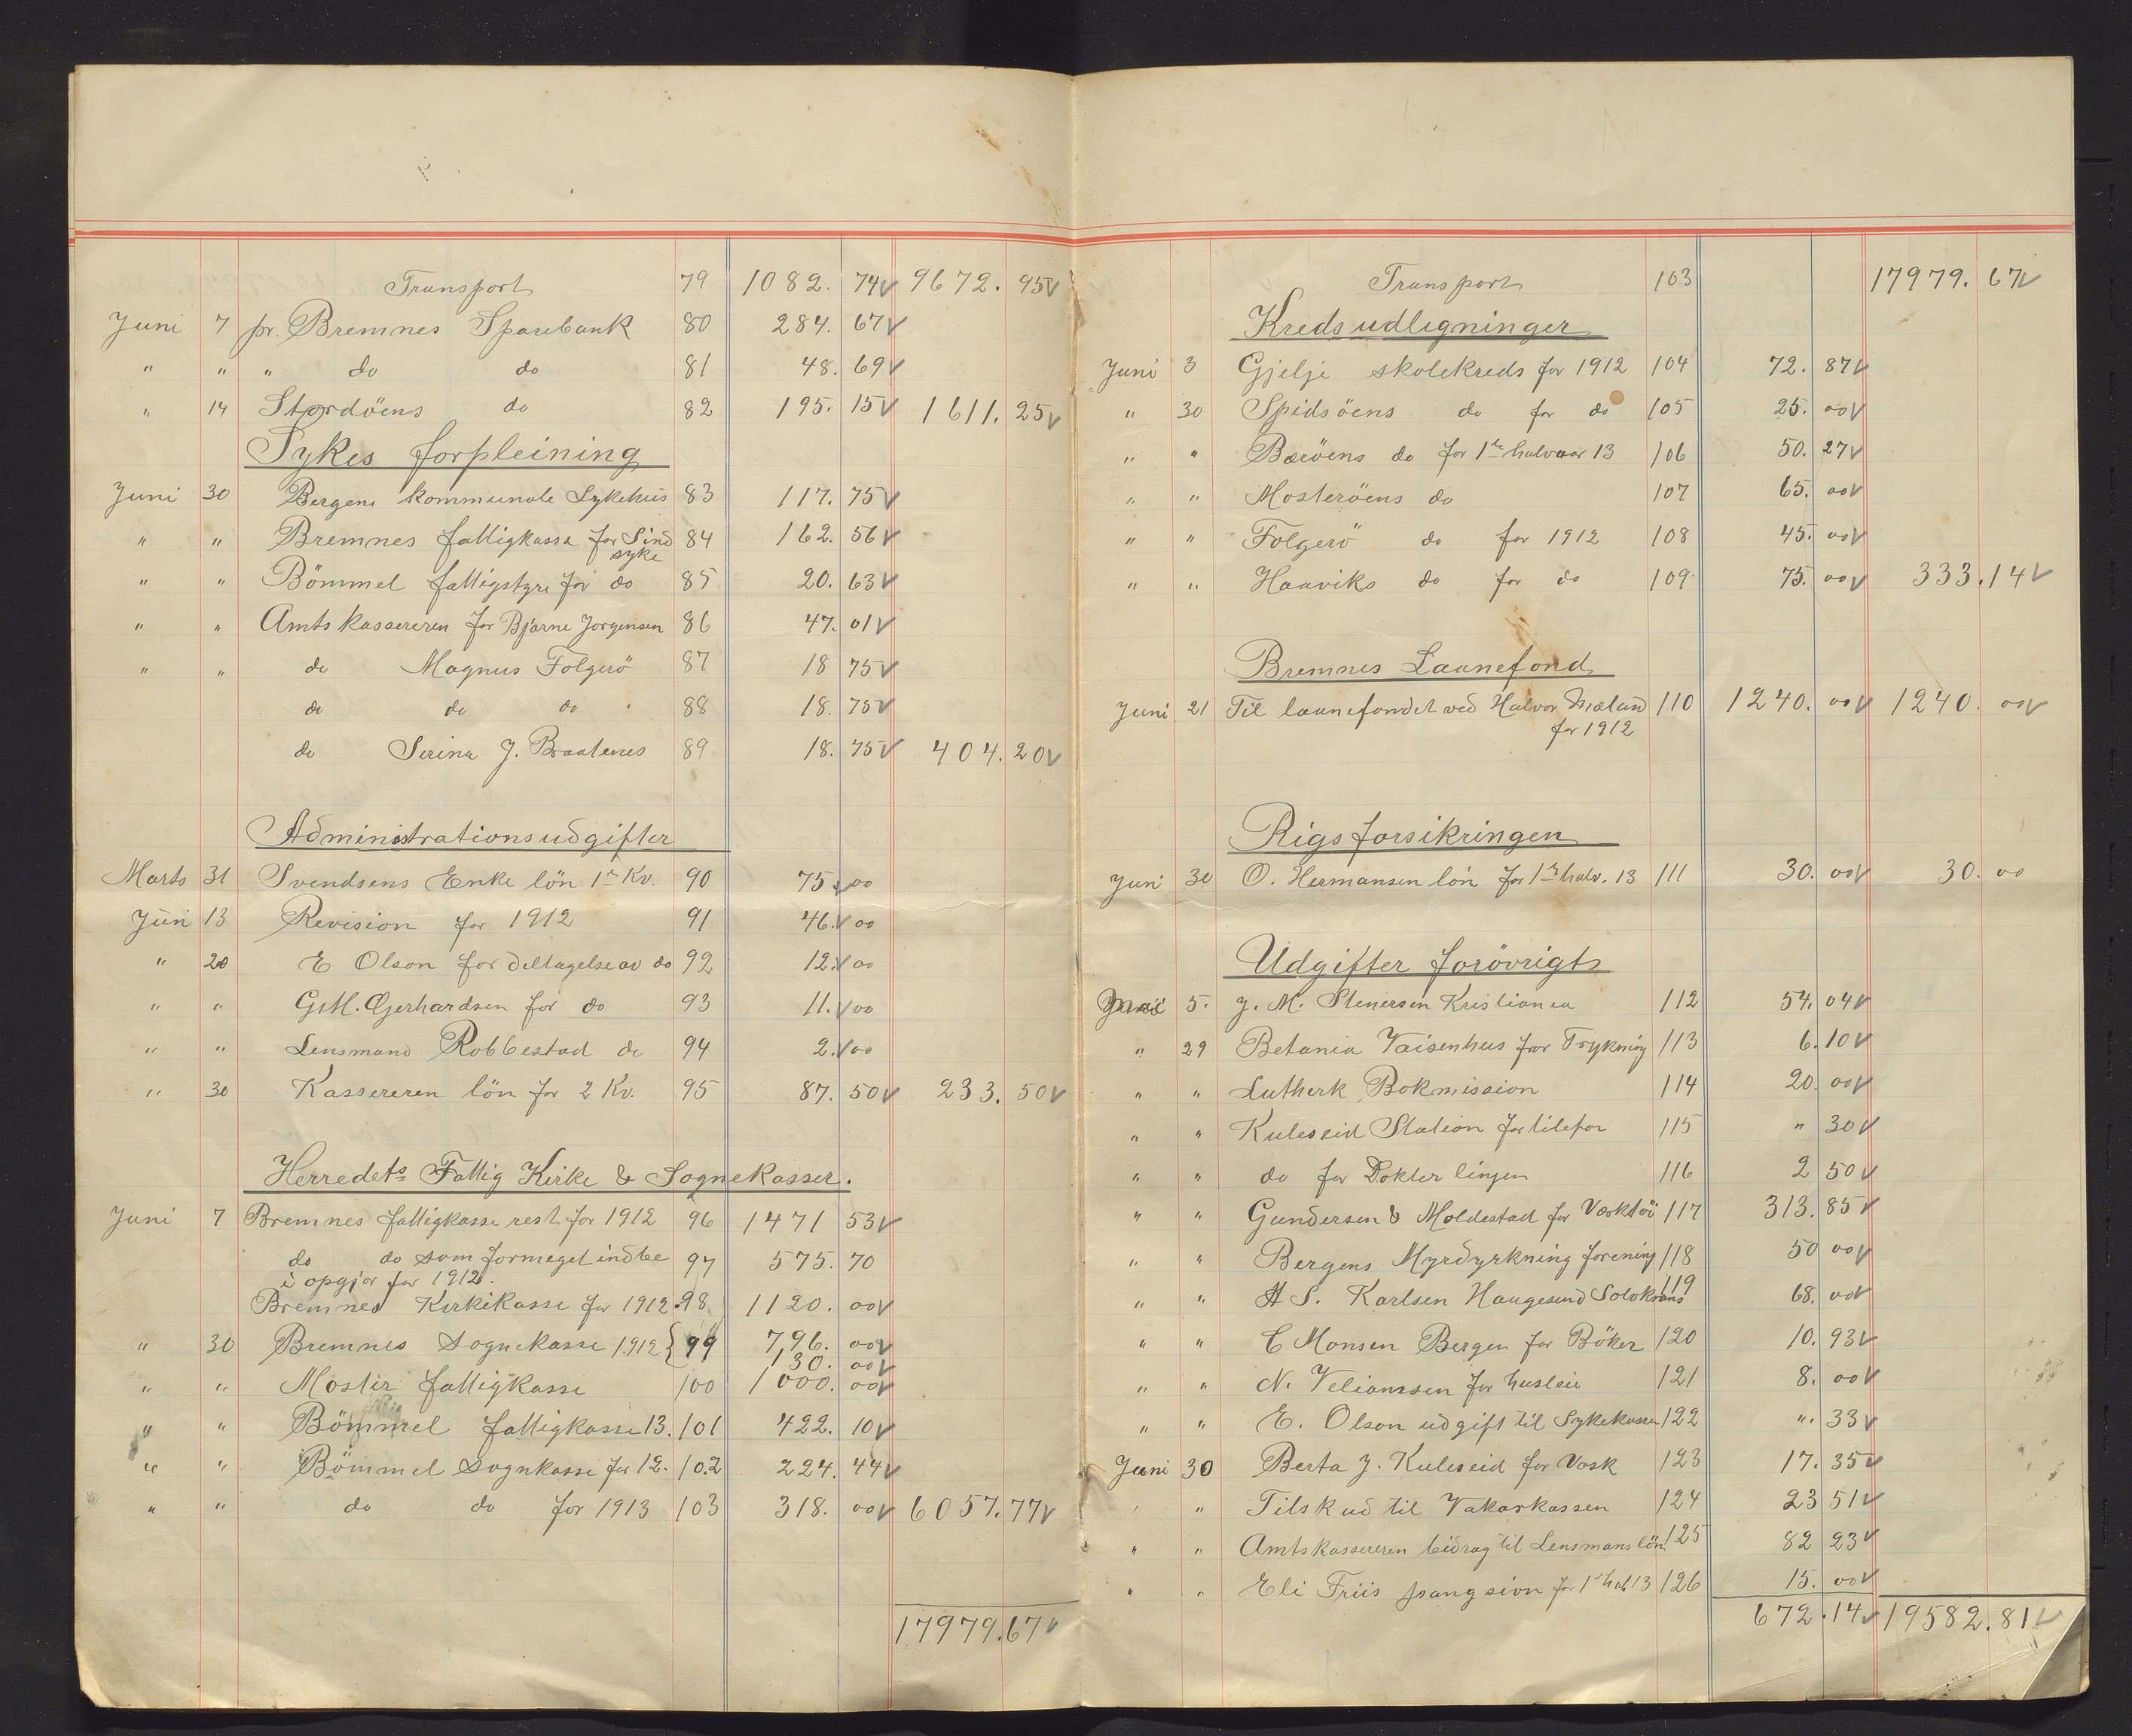 Transport 79 1082. 74 9672. 95
Juni 7 pr. Bremnes Sparebank 80 284. 67
" " " do do 81 48. 69
" 14 Stordöens do 82 195. 15 1611. 25
Sykes forpleining
Juni 30 Bergens kommunale Sykehus 83 117. 75
" " Bremnes fattigkasse for Sind 84 162. 56
syke
" " Bömmel fattigstyre for do 85 20. 63
" " Amtskassereren for Bjarne Jorgensen 86 47. 01
" " do Magnus Folgerö 87 18 75
do do do 88 18. 75
do Serina J. Braatenes 89 18. 75 404. 20
Administrationsudgifter
Marts 31 Svendsens Enke lön 1ste Kv. 90 75. 00
Juni 13 Revision for 1912 91 46. 00
" 20 E Olson for deltagelse av do 92 12. 00
" " G.M. Gjerhardsen for do 93 11. 00
" " Lensmand Robbestad do 94 2. 00
" 30 Kassereren lön for 2 Kv. 95 87. 50 233. 50
Herredets Fattig Kirke & Sognekasser.
Juni 7 Bremnes fattigkasse rest for 1912 96 1471 53
do do som formeget indbe 97 575. 70
i opgjör for 1912.
Bremnes Kirkekasse for 1912. 98 1120. 00
" 30 Bremnes Sognekasse 1912 { 99 796. 00
130. 00
" " Moster fattigkasse 100 1000. 00
" " Bömmel fattigkasse 13. 101 422. 10
" " Bömmel Sognkasse for 12. 102 224. 44
" " do do for 1913 103 318. 00 6057. 77
17979. 67
Transport 103 17979. 67
Kredsudligninger
Juni 3 Gjelje skolekreds for 1912 104 72. 87
" 30 Spidsöens do for do 105 25. 00
" " Baröens do for 1ste halvaar 13 106 50. 27
" " Mosteröens do 107 65. 00
" " Folgerö do for 1912 108 45. 00
" " Haaviks do for do 109 75. 00 333. 14
Bremnes Laanefond
Juni 21 Til laanefondet ved Halvor Mæland 110 1240. 00 1240. 00
for 1912
Rigsforsikringen
Juni 30 O. Hermansen lön for 1ste halv. 13 111 30. 00 30. 00
Udgifter forövrigt
5. J. M. Stenersen Kristiania 112 54. 04
" 29 Betania Vaisenhus for Trykning 113 6. 10
" " Lutherk Bokmission 114 20. 00
" " Kuleseid Station for telefon 115 " 30
" " do for Dokter linjen 116 2 50
" " Gundersen & Moldestad for Værktöi 117 313. 85
" " Bergens Myrdyrkning forening 118 50 00
" " H S. Karlsen Haugesund Solvkrans 119 68. 00
" " C Monsen Bergen for Böker 120 10. 93
" " N. for husleie 121 8. 00
" " E. Olson udgift til Sykekassen 122 ". 33
Juni 30 Berta J. Kuleseid for Vask 123 17. 35
" " Tilskud til Vakarkassen 124 23 51
" " Amtskassereren bidrag til Lensmans lön 125 82 23
" " Eli Friis pangsion for 1 hal 13 126 15. 00
672. 14 19582. 81